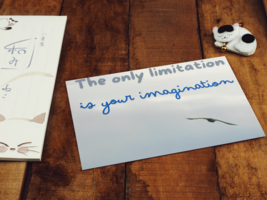 The only limitation
is your imagination